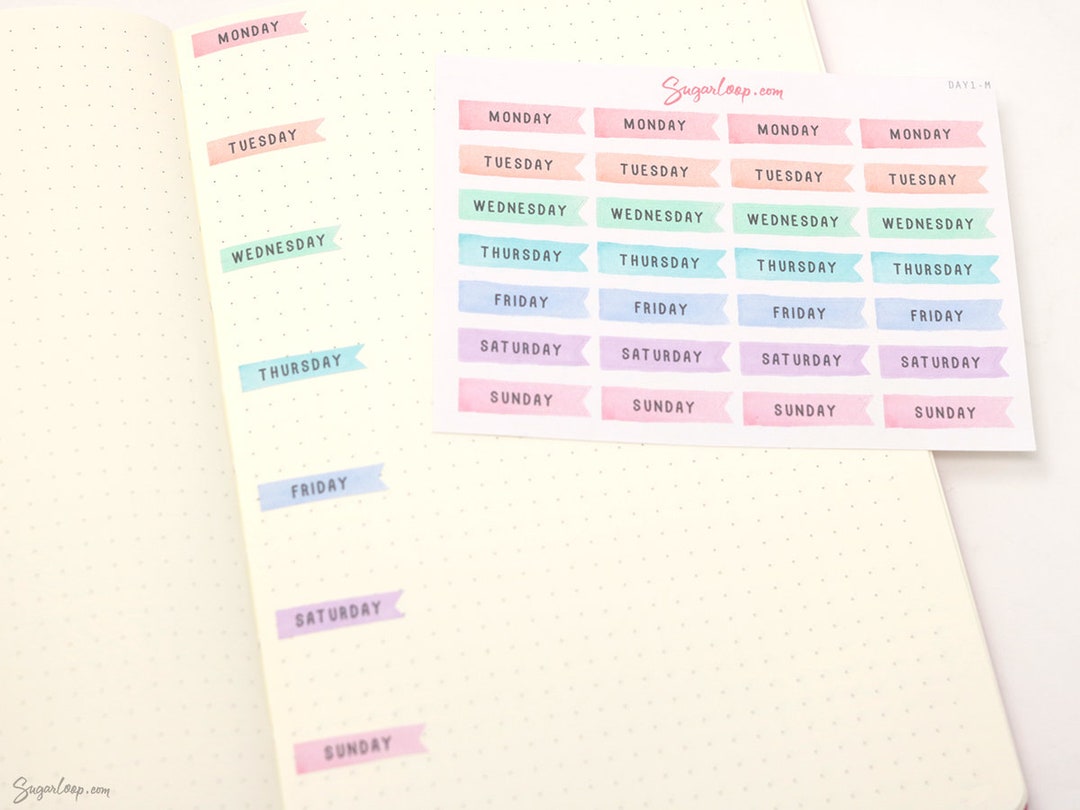 MONDAY
TUESDAY
WEDNESDAY
THURSDAY
FRIDAY
SATURDAY
SUNDAY
Sugarloop.com
DAY1-M
MONDAY MONDAY MONDAY MONDAY
TUESDAY TUESDAY TUESDAY TUESDAY
WEDNESDAY WEDNESDAY WEDNESDAY WEDNESDAY
THURSDAY THURSDAY THURSDAY THURSDAY
FRIDAY FRIDAY FRIDAY FRIDAY
SATURDAY SATURDAY SATURDAY SATURDAY
SUNDAY SUNDAY SUNDAY SUNDAY
Sugarloop.com